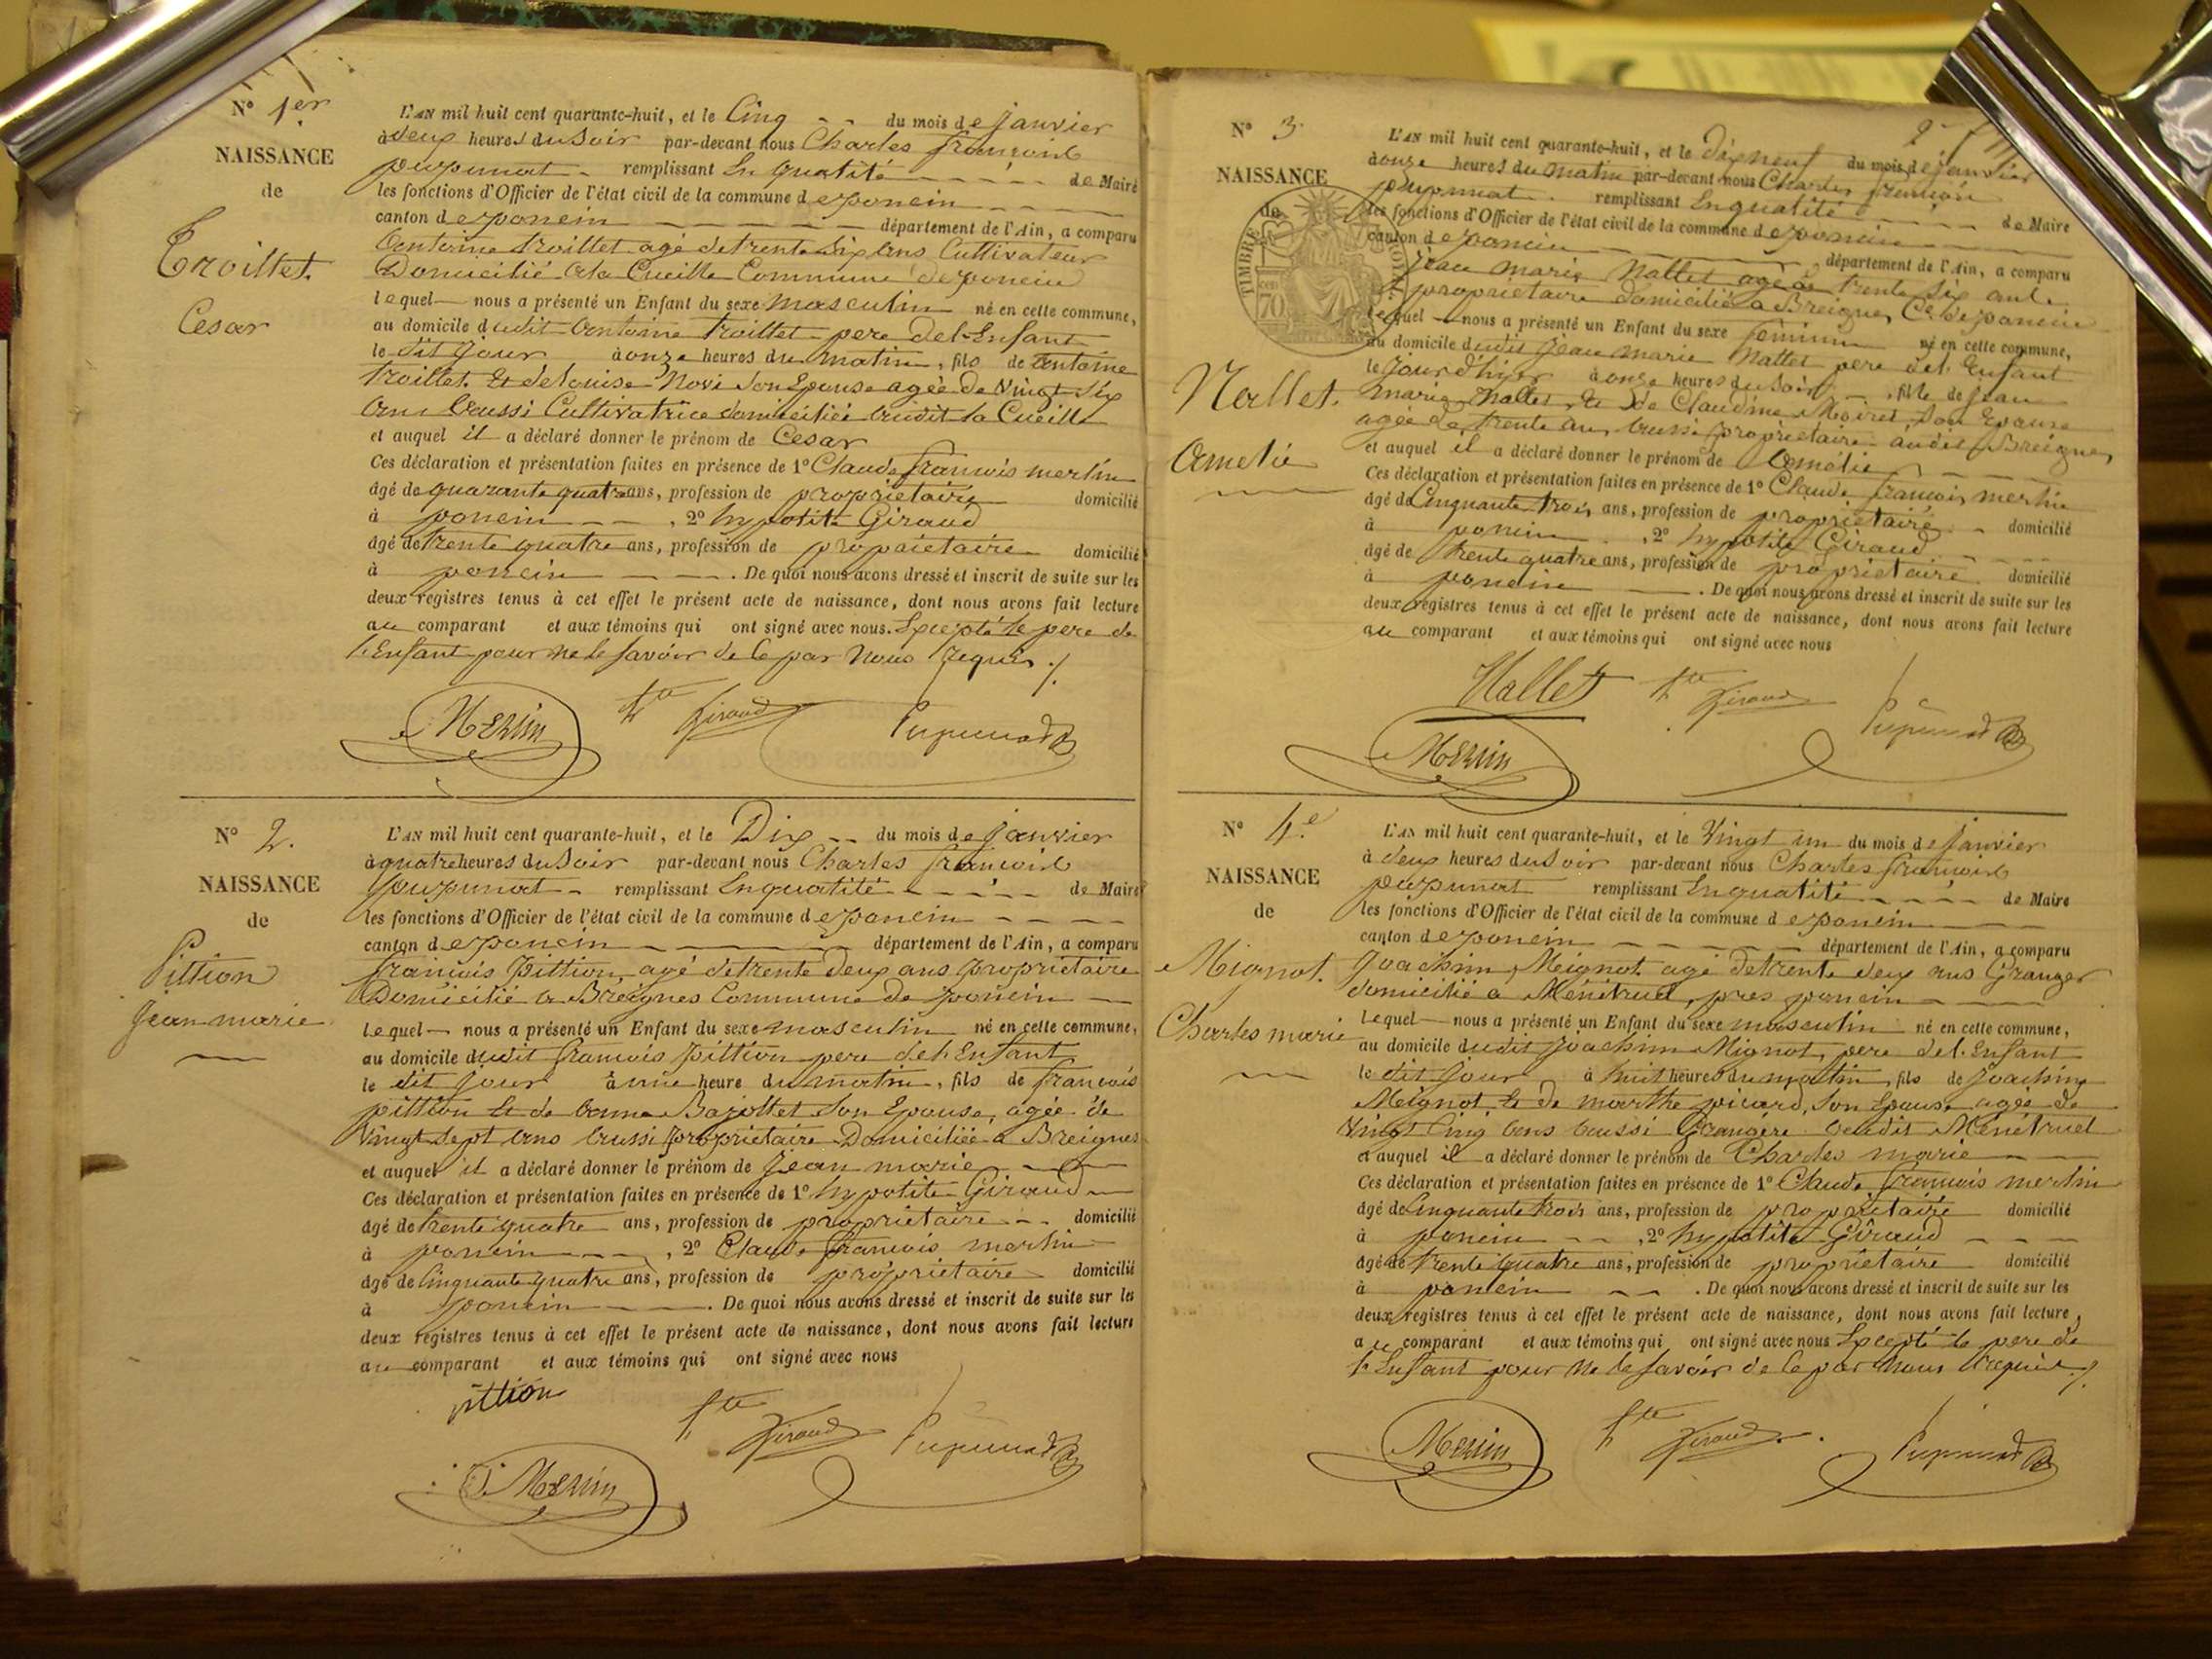 N° 1er
NAISSANCE
de
Troillet
Cesar
L'AN mil huit cent quarante-huit, et le Cinq du mois de janvier
à deux heures du Soir par-devant nous Charles francois
pupunat remplissant En qualité de Maire
les fonctions d'Officier de l'état civil de la commune de poncin
canton de poncin département de l'Ain, a comparu
antoine troillet agé de trente Six ans Cultivateur
Domicilié a la Cueille Commune de poncin
lequel nous a présenté un Enfant du sexe masculin né en cette commune,
au domicile dudit antoine troillet pere del Enfant
le dit jour à onze heures du matin, fils de antoine
troillet Et de louise Son Epouse agée de Vingt Six
ans aussi Cultivatrice domiciliée audit la Cueille
et auquel il a déclaré donner le prénom de Cesar
Ces déclaration et présentation faites en présence de 1° Claude francois merlin
âgé de quarante quatre ans, profession de propriétaire domicilié
à poncin , 2° hypolite Giraud
âgé de trente quatre ans, profession de propriétaire domicilié
à poncin . De quoi nous avons dressé et inscrit de suite sur les
deux registres tenus à cet effet le présent acte de naissance, dont nous avons fait lecture
au comparant et aux témoins qui ont signé avec nous. Excepté le pere de
l'Enfant pour ne le Savoir de ce par Nous requis
Merlin hte Giraud Pupunat
N° 2.
NAISSANCE
de
Pittion
Jean marie
L'AN mil huit cent quarante-huit, et le Dix du mois de janvier
à quatre heures du Soir par-devant nous Charles francois
pupunat remplissant En qualité de Maire
les fonctions d'Officier de l'état civil de la commune de poncin
canton de poncin département de l'Ain, a comparu
francois Pittion agé de trente Deux ans propriétaire
Domicilié a Breignes Commune de poncin
lequel nous a présenté un Enfant du sexe masculin né en cette commune,
au domicile dudit francois pittion pere del Enfant
le dit jour à une heure du matin, fils de francois
pittion Et de anne Bajollet Son Epouse, agée de
Vingt Sept ans aussi propriétaire Domiciliée à Breignes
et auquel il a déclaré donner le prénom de jean marie
Ces déclaration et présentation faites en présence de 1° hypolite Giraud
âgé de trente quatre ans, profession de propriétaire domicilié
à poncin , 2° Claude francois merlin
âgé de Cinquante quatre ans, profession de propriétaire domicilié
à poncin . De quoi nous avons dressé et inscrit de suite sur les
deux registres tenus à cet effet le présent acte de naissance, dont nous avons fait lecture
au comparant et aux témoins qui ont signé avec nous
pittion
hte Giraud Pupunat
Merlin
N° 3
NAISSANCE
de
TIMBRE ROYAL
70
Nallet
Amelie
L'AN mil huit cent quarante-huit, et le Dix neuf du mois de janvier
à onze heures du matin par-devant nous Charles francois
pupunat remplissant En qualité de Maire
les fonctions d'Officier de l'état civil de la commune de poncin
canton de poncin département de l'Ain, a comparu
Jean marie Nallet agé de trente Six ans
propriétaire domicilié a Breignes Cne de poncin
lequel nous a présenté un Enfant du sexe féminin né en cette commune,
au domicile dudit Jean marie Nallet pere del Enfant
le jour d'hyer à onze heures du Soir, fille de jean
marie Nallet Et de Claudine Son Epouse
agée de trente ans aussi propriétaire audit Breignes
et auquel il a déclaré donner le prénom de Amélie
Ces déclaration et présentation faites en présence de 1° Claude francois merlin
âgé de Cinquante trois ans, profession de propriétaire domicilié
à poncin , 2° hypolite Giraud
âgé de trente quatre ans, profession de propriétaire domicilié
à poncin . De quoi nous avons dressé et inscrit de suite sur les
deux registres tenus à cet effet le présent acte de naissance, dont nous avons fait lecture
au comparant et aux témoins qui ont signé avec nous
Nallet hte Giraud Pupunat
Merlin
N° 4e
NAISSANCE
de
Mignot
Charles marie
L'AN mil huit cent quarante-huit, et le Vingt un du mois de janvier
à deux heures du Soir par-devant nous Charles francois
pupunat remplissant En qualité de Maire
les fonctions d'Officier de l'état civil de la commune de poncin
canton de poncin département de l'Ain, a comparu
Joachim Mignot agé de trente deux ans Granger
domicilié a Ménétruel, pres poncin
lequel nous a présenté un Enfant du sexe masculin né en cette commune,
au domicile dudit Joachim Mignot, pere del Enfant
le dit jour à huit heures du matin, fils de Joachim
Mignot Et de marthe picard, Son Epouse agée de
Vingt Cinq ans aussi Grangère audit Ménétruel
et auquel il a déclaré donner le prénom de Charles marie
Ces déclaration et présentation faites en présence de 1° Claude francois merlin
âgé de Cinquante trois ans, profession de propriétaire domicilié
à poncin , 2° hypolite Giraud
âgé de trente quatre ans, profession de propriétaire domicilié
à poncin . De quoi nous avons dressé et inscrit de suite sur les
deux registres tenus à cet effet le présent acte de naissance, dont nous avons fait lecture
au comparant et aux témoins qui ont signé avec nous Excepté le pere de
l'Enfant pour ne le Savoir de ce par Nous requis
Merlin hte Giraud Pupunat